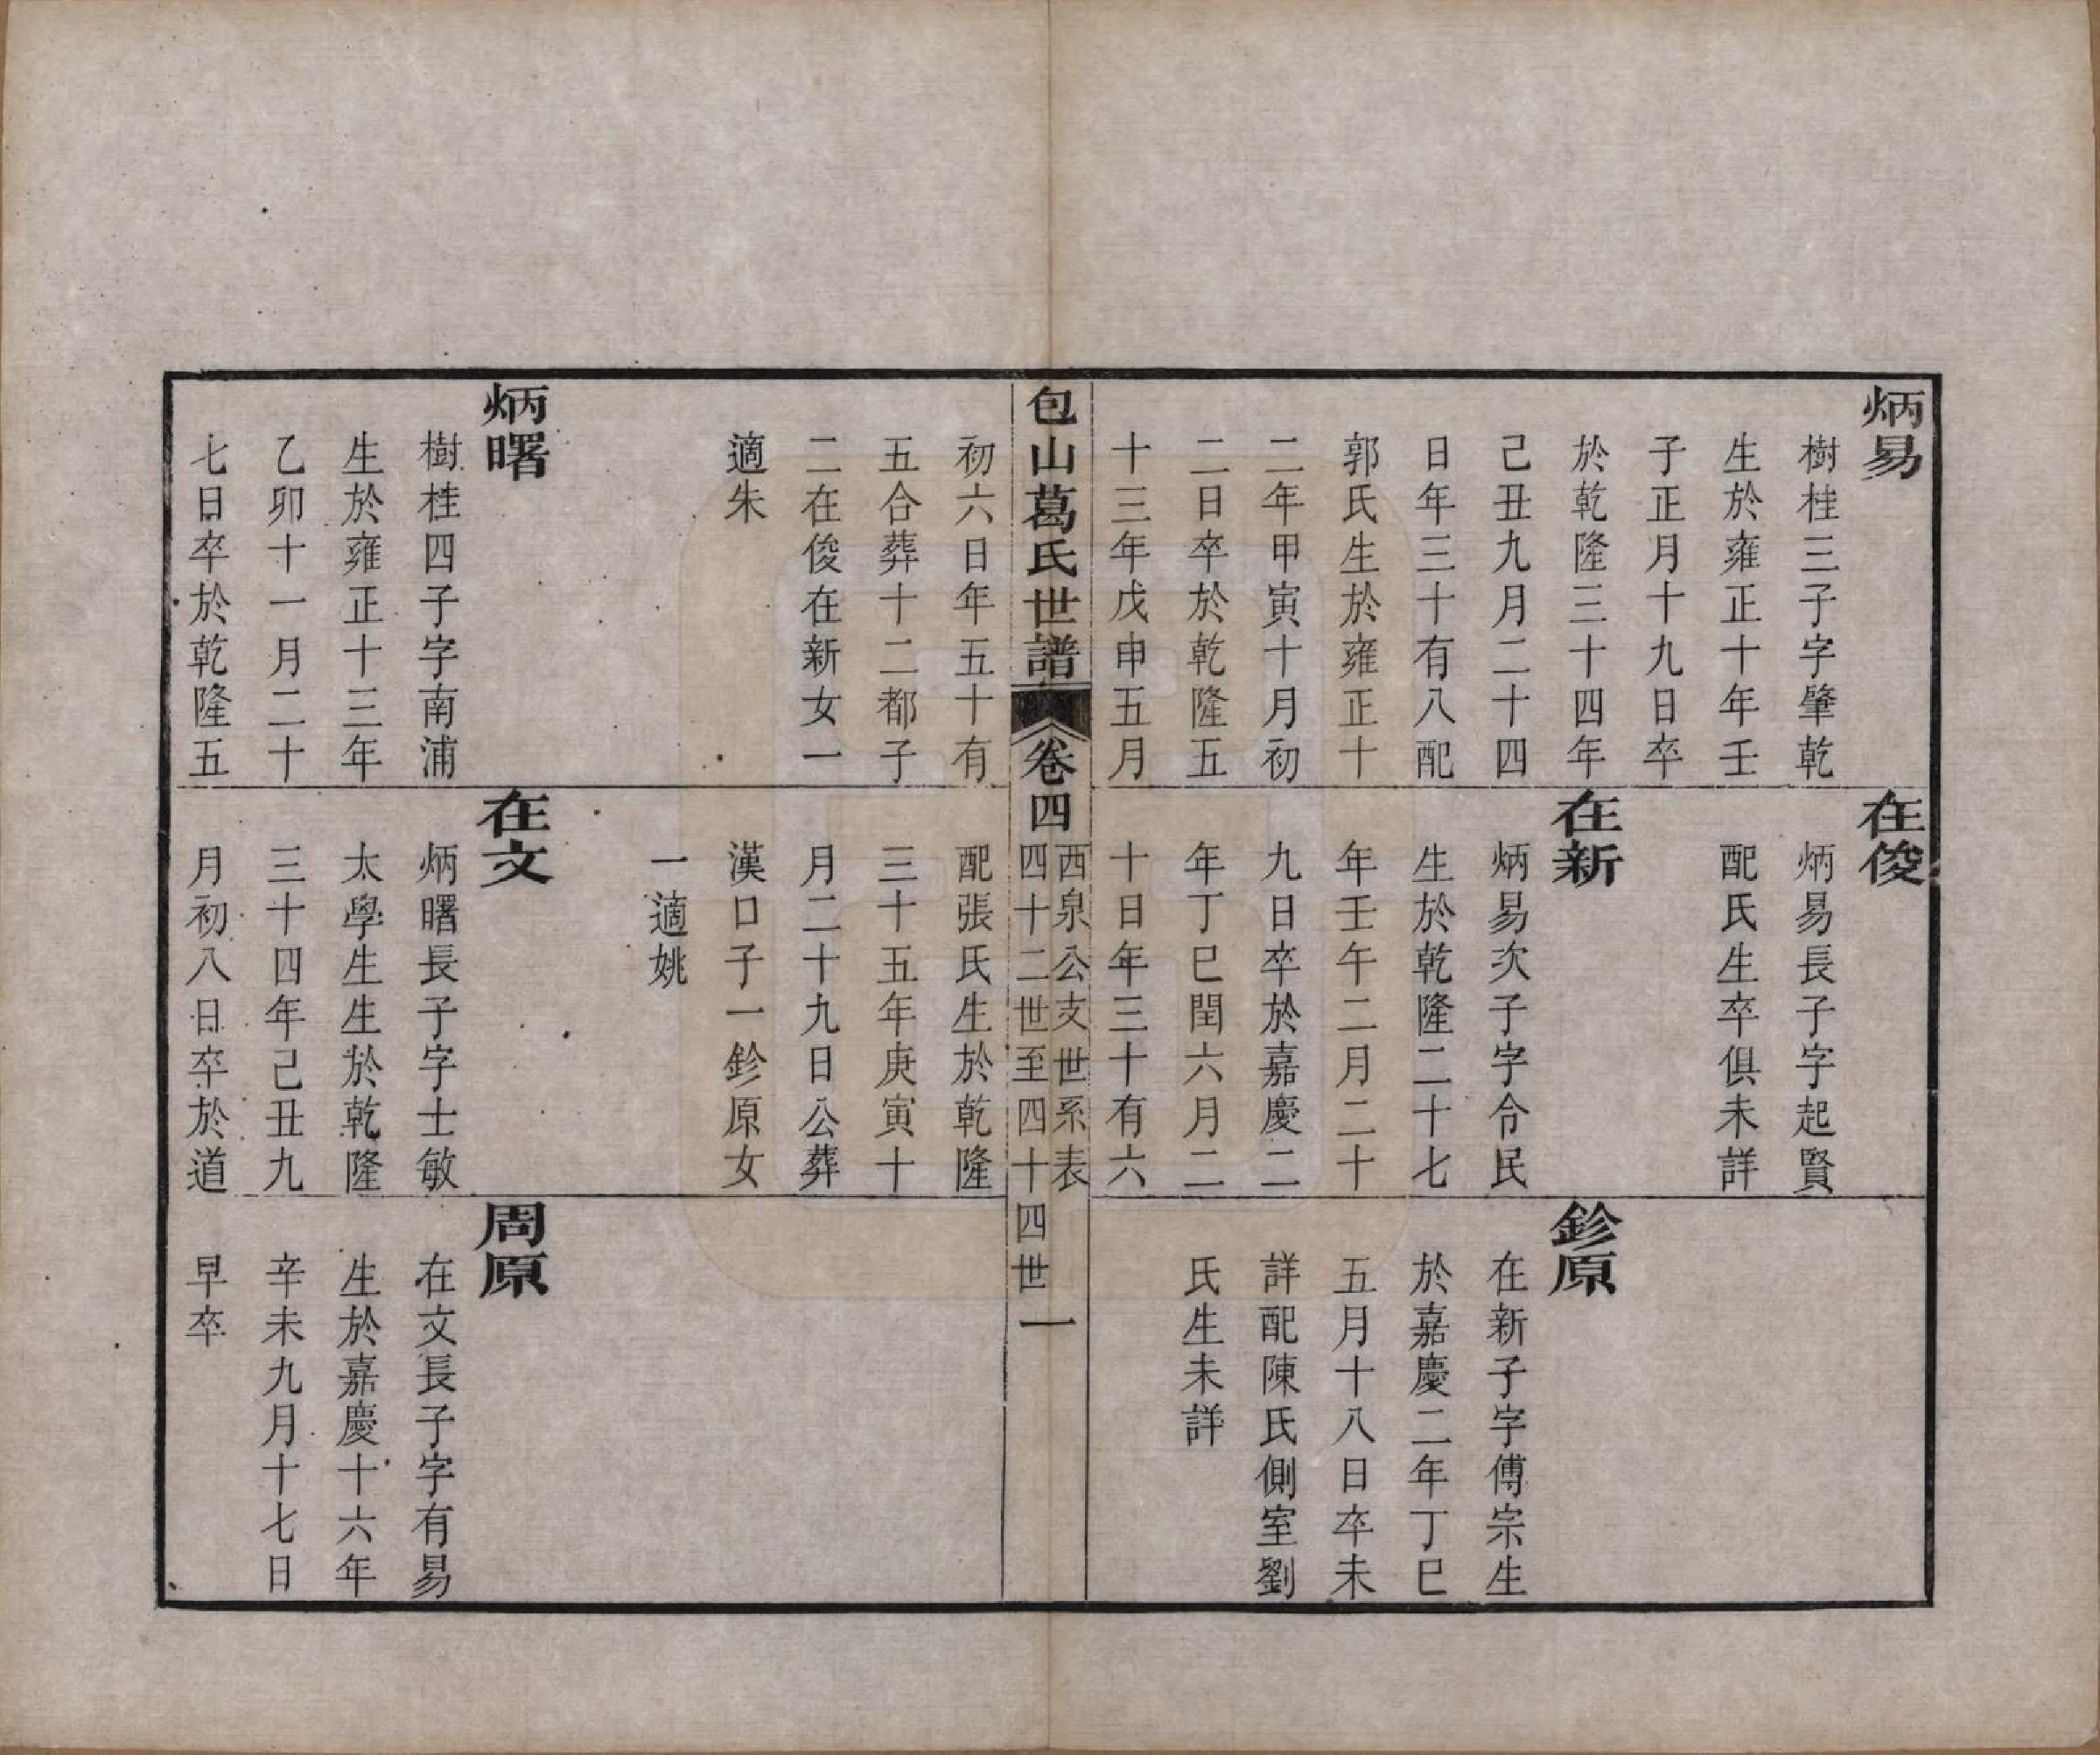 炳易
樹桂三子字肇乾
生於雍正十年壬
子正月十九日卒
於乾隆三十四年
己丑九月二十四
日年三十有八配
郭氏生於雍正十
二年甲寅十月初
二日卒於乾隆五
十三年戊申五月
在俊
炳易長子字起賢
配氏生卒俱未詳
在新
炳易次子字令民
生於乾隆二十七
年壬午二月二十
九日卒於嘉慶二
年丁巳閏六月二
十日年三十有六
鉁原
在新子字傅宗生
於嘉慶二年丁巳
五月十八日卒未
詳配陳氏側室劉
氏生未詳
包山葛氏世譜
卷四
西泉公支世系表
四十二世至四十四世
一
初六日年五十有
五合葬十二都子
二在俊在新女一
適朱
炳曙
樹桂四子字南浦
生於雍正十三年
乙卯十一月二十
七日卒於乾隆五
配張氏生於乾隆
三十五年庚寅十
月二十九日公葬
漢口子一鉁原女
一適姚
在文
炳曙長子字士敏
太學生生於乾隆
三十四年己丑九
月初八日卒於道
周原
在文長子字有易
生於嘉慶十六年
辛未九月十七日
早卒